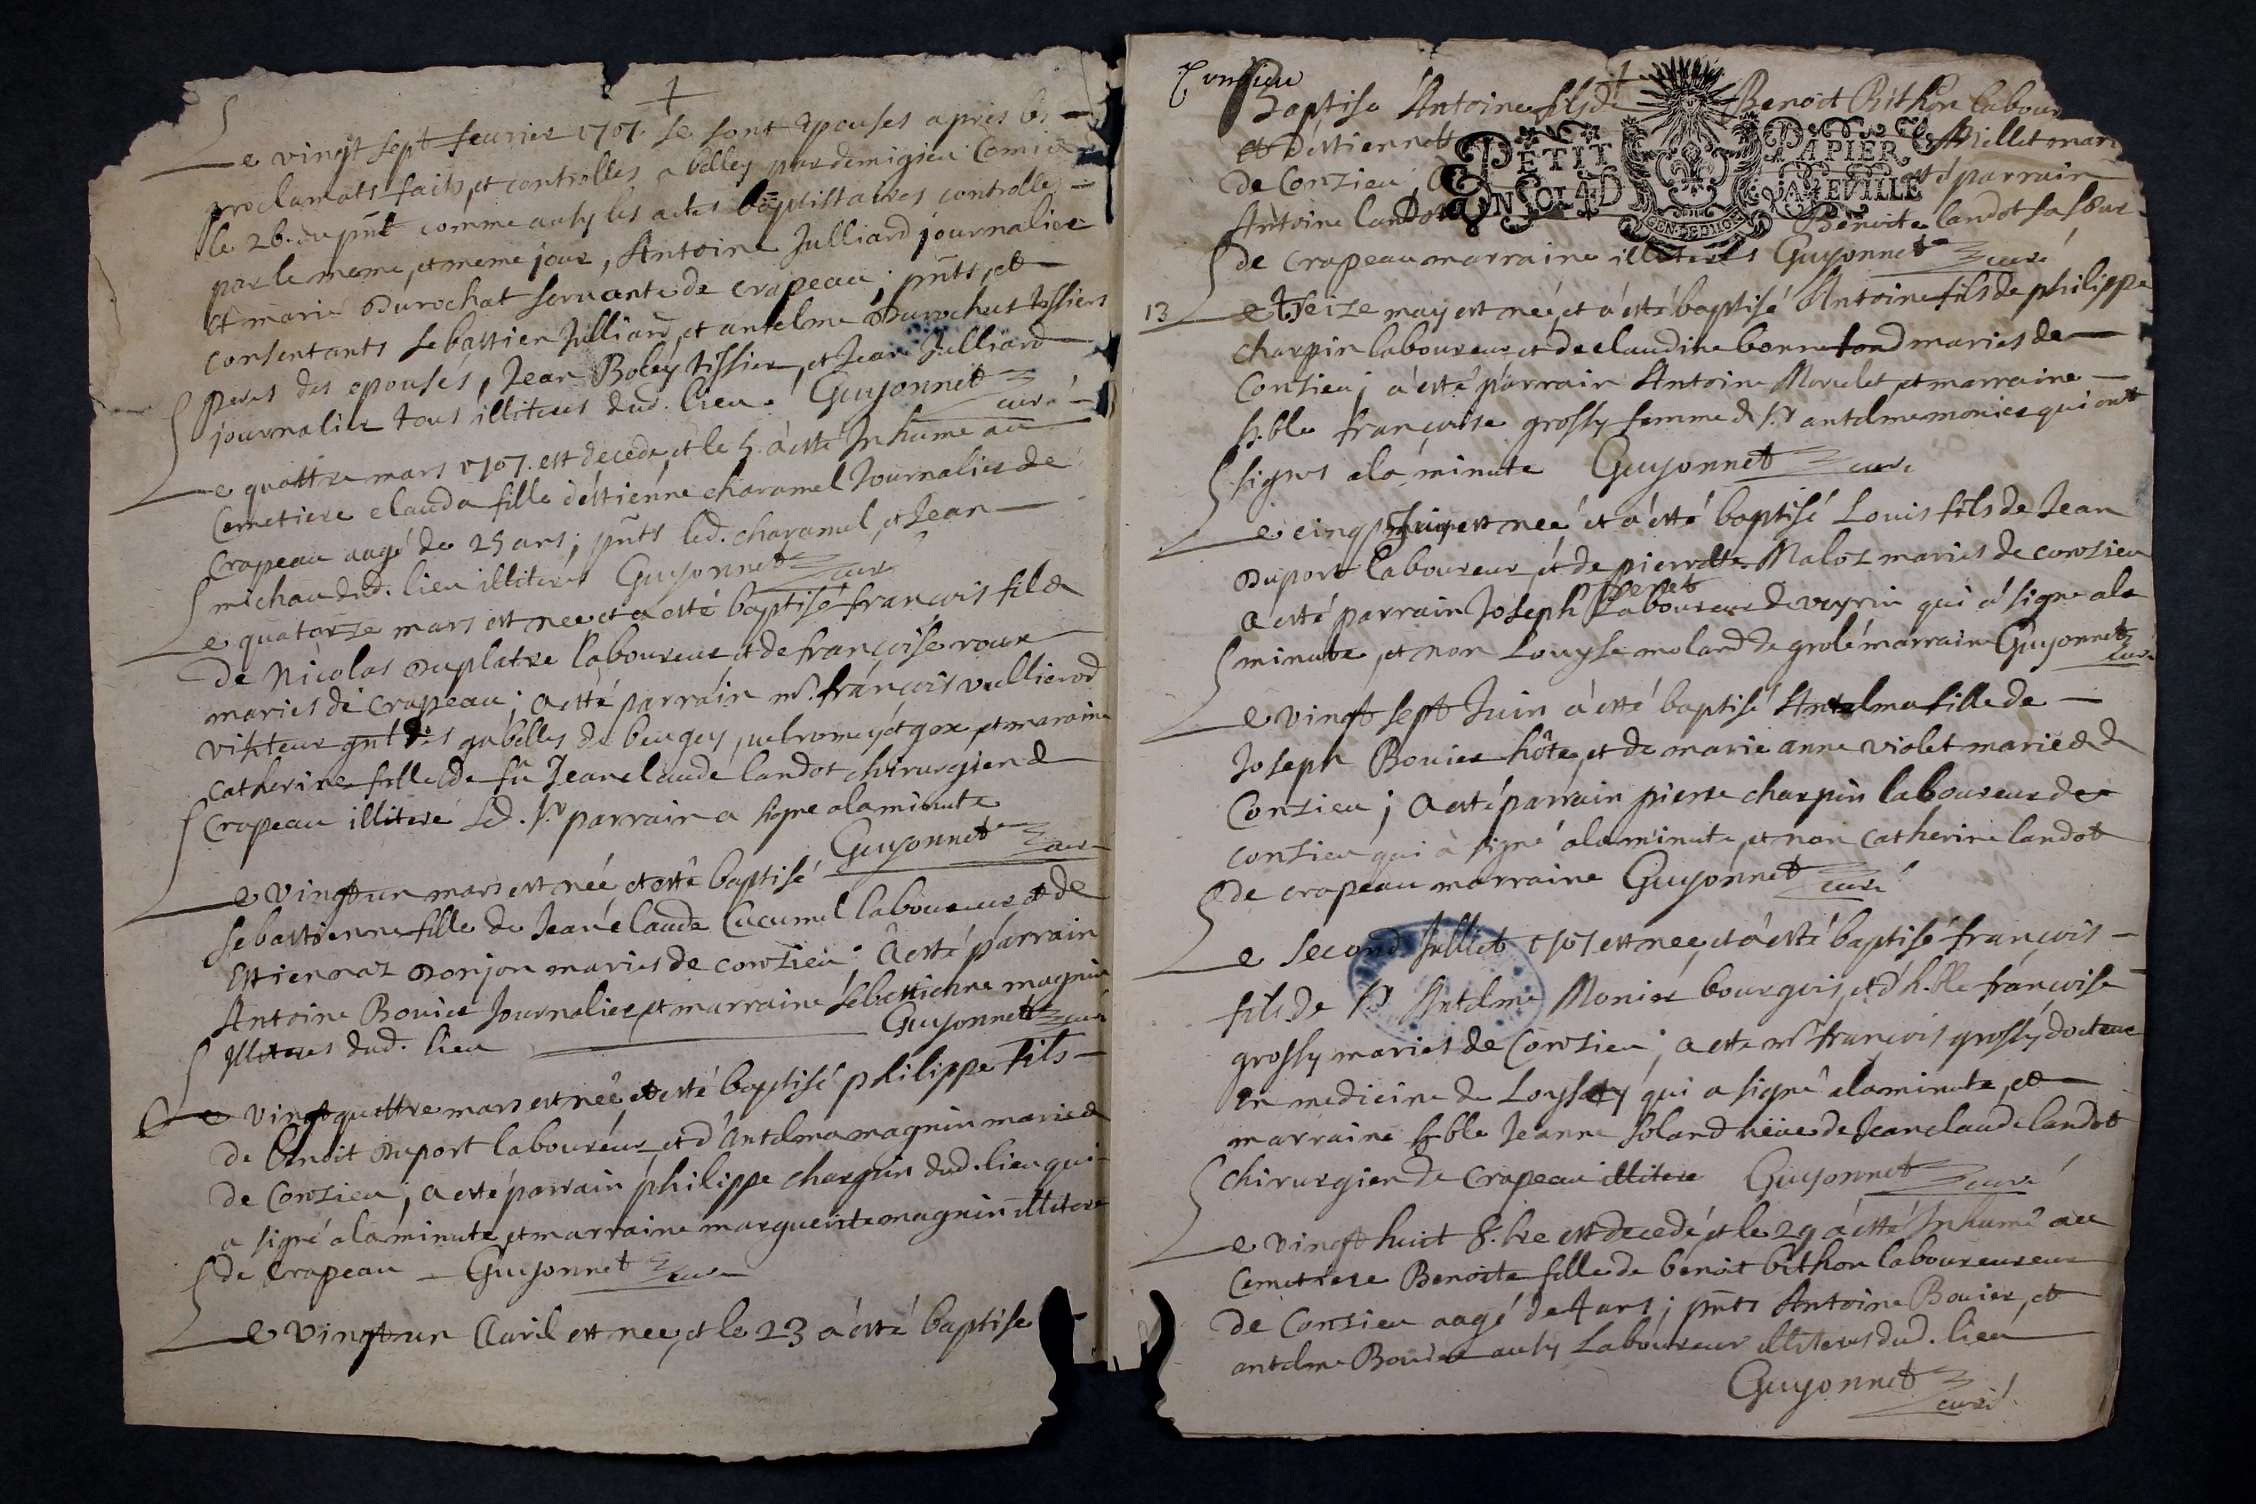 Le vingt sept feurier 1707. se sont epousés apres les
proclamats faits, et controlles a belley par demigieu Comis
le 26. du pnt comme ausy les actes baptistaires controlles
par le meme, et meme jour, Antoine Julliard journalier
et marie Durochat seruante de crapeau; pnts, et
consentants sebastien Julliard, et antelme Durochat tissiers
peres des epousés, Jean Boley tissier, et Jean Julliard
journalier tous illiterés dud. lieu. Guyonnet
curé
Le quattre mars 1707. est decedé, et le 5. a esté Inhumé au
Cemetiere clauda fille d'estienne charamel Journalier de
Crapeau aagé de 25 ans; pnts led. charamel, et Jean
michaud dud. lieu illiterés Guyonnet curé
Le quatorze mars est neé et a esté baptisé françois fil
de Nicolas Duplatre laboureur et de françoise roux
mariés de Crapeau; a esté parrain mr. françois vullierod
visiteur gnl des gabelles de beugey, uelromey et gex, et maraine
catherine fille de fû Jean claude landot chirurgien de
Crapeau illiteré led. sr. parrain a signé a la minute
Guyonnet curé
Le vingt un mars est neé, et esté baptisé
sebastienne fille de Jean claude Cucumel laboureur et de
Estiennaz Donjon mariés de conzieu; a esté parrain
Antoine Bouier Journalier, et marraine sebastienne magnin
Illiterés dud. lieu Guyonnet curé
Le vingt quattre mars est neé, et esté baptisé philippe fils
de benoit Duport laboureur, et d'Antelma magnin mariés
de Conzieu; a esté parrain philippe charpin dud. lieu qui
a signé a la minute, et marraine marguerite magnin illiteré
de Crapeau Guyonnet curé
Le vingt un Auril est neé, et le 23 a esté baptisé
Conzieu
Baptisé Antoine fils de Benoit Bithon labour
et d'estiennette Millet mari
de Conzieu, a esté parrain
Antoine landot Benoite landot sa sœur
PETIT PAPIER
GEN. DE DIION
de crapeau marraine illiterés Guyonnet curé
13 Le treize may est neé, et a esté baptisé Antoine fils de philippe
charpin laboureur et de claudine bonnetond mariés de
Conzieu; a esté parrain Antoine Morelet, et marraine
h.ble françoise grossy femme de sr. antelme monier qui ont
signés a la minute Guyonnet curé
Le cinq Juin est neé et a esté baptisé Louis fils de Jean
Duport laboureur, et de pierrotte Maloz mariés de conzieu
a esté parrain Joseph laboureur de veyrin qui a signé a la
minute, et non Louyse molard de grolé marraine Guyonnet
curé
Le vingt sept Juin a esté baptisé Antelma fille de
Joseph Bouier hôte, et de marie anne violet mariés de
Conzieu; a esté parrain pierre charpin laboureur de
conzieu qui a signé a la minute, et non catherine landot
de crapeau marraine Guyonnet curé
Le second Julliet 1707 est neé, et a esté baptisé françois
fils de sr. Antelme Monier bourgeois, et d'h.ble françoise
grossy mariés de Conzieu; a esté mr. françois grossy docteur
en medicine de Loysey qui a signé a la minute, et
marraine h.ble Jeanne Soland veuve de Jean claude landot
chirurgien de Crapeau illiteré Guyonnet curé
Le vingt huit 8.bre est decedé, et le 29 a esté Inhumé au
Cemetiere Benoite fille de benoit bithon laboureureur
de Conzieu aagé de 4 ans; pnts Antoine Bouier, et
antelme Bouier ausy Laboureur illiterés dud. lieu
Guyonnet
curé